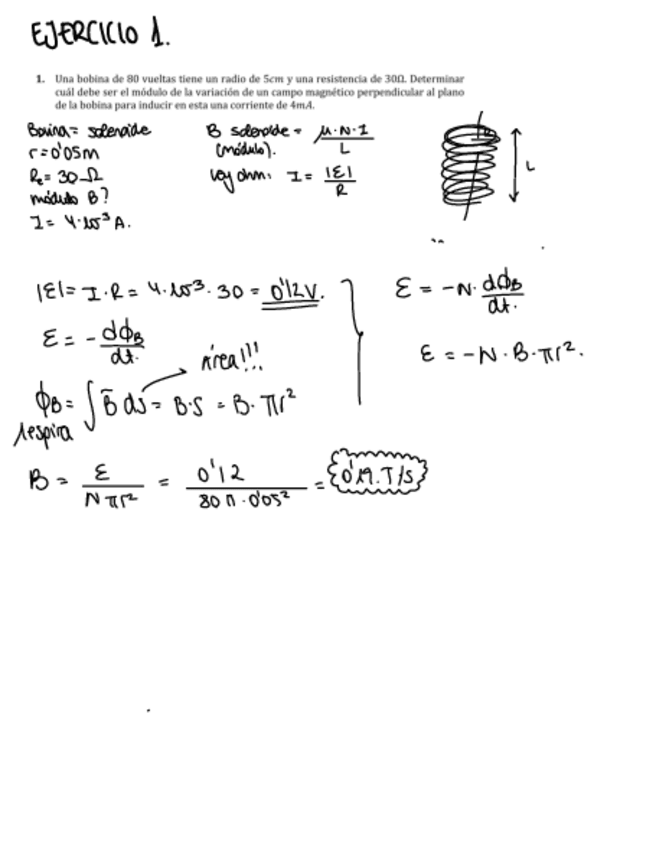 EJERCICIO 1.
1. Una bobina de 80 vueltas tiene un radio de 5cm y una resistencia de 30Ω. Determinar
cuál debe ser el módulo de la variación de un campo magnético perpendicular al plano
de la bobina para inducir en esta una corriente de 4mA.
Bovina = solenoide
r = 0'05m
Re = 30 Ω
módulo B?
I = 4·10⁻³ A.
B solenoide = μ·N·I / L
(módulo).
Ley ohm: I = |ε| / R
L
|ε| = I·R = 4·10⁻³·30 = 0'12V.
ε = - dϕB / dt.
Área!!!
ϕB = ∫ B̄ ds̄ = B·S = B·πr²
1espira
ε = -N· dϕB / dt.
ε = -N·B·πr².
B = ε / Nπr² = 0'12 / 80π·0'05² = 0'19 T/s